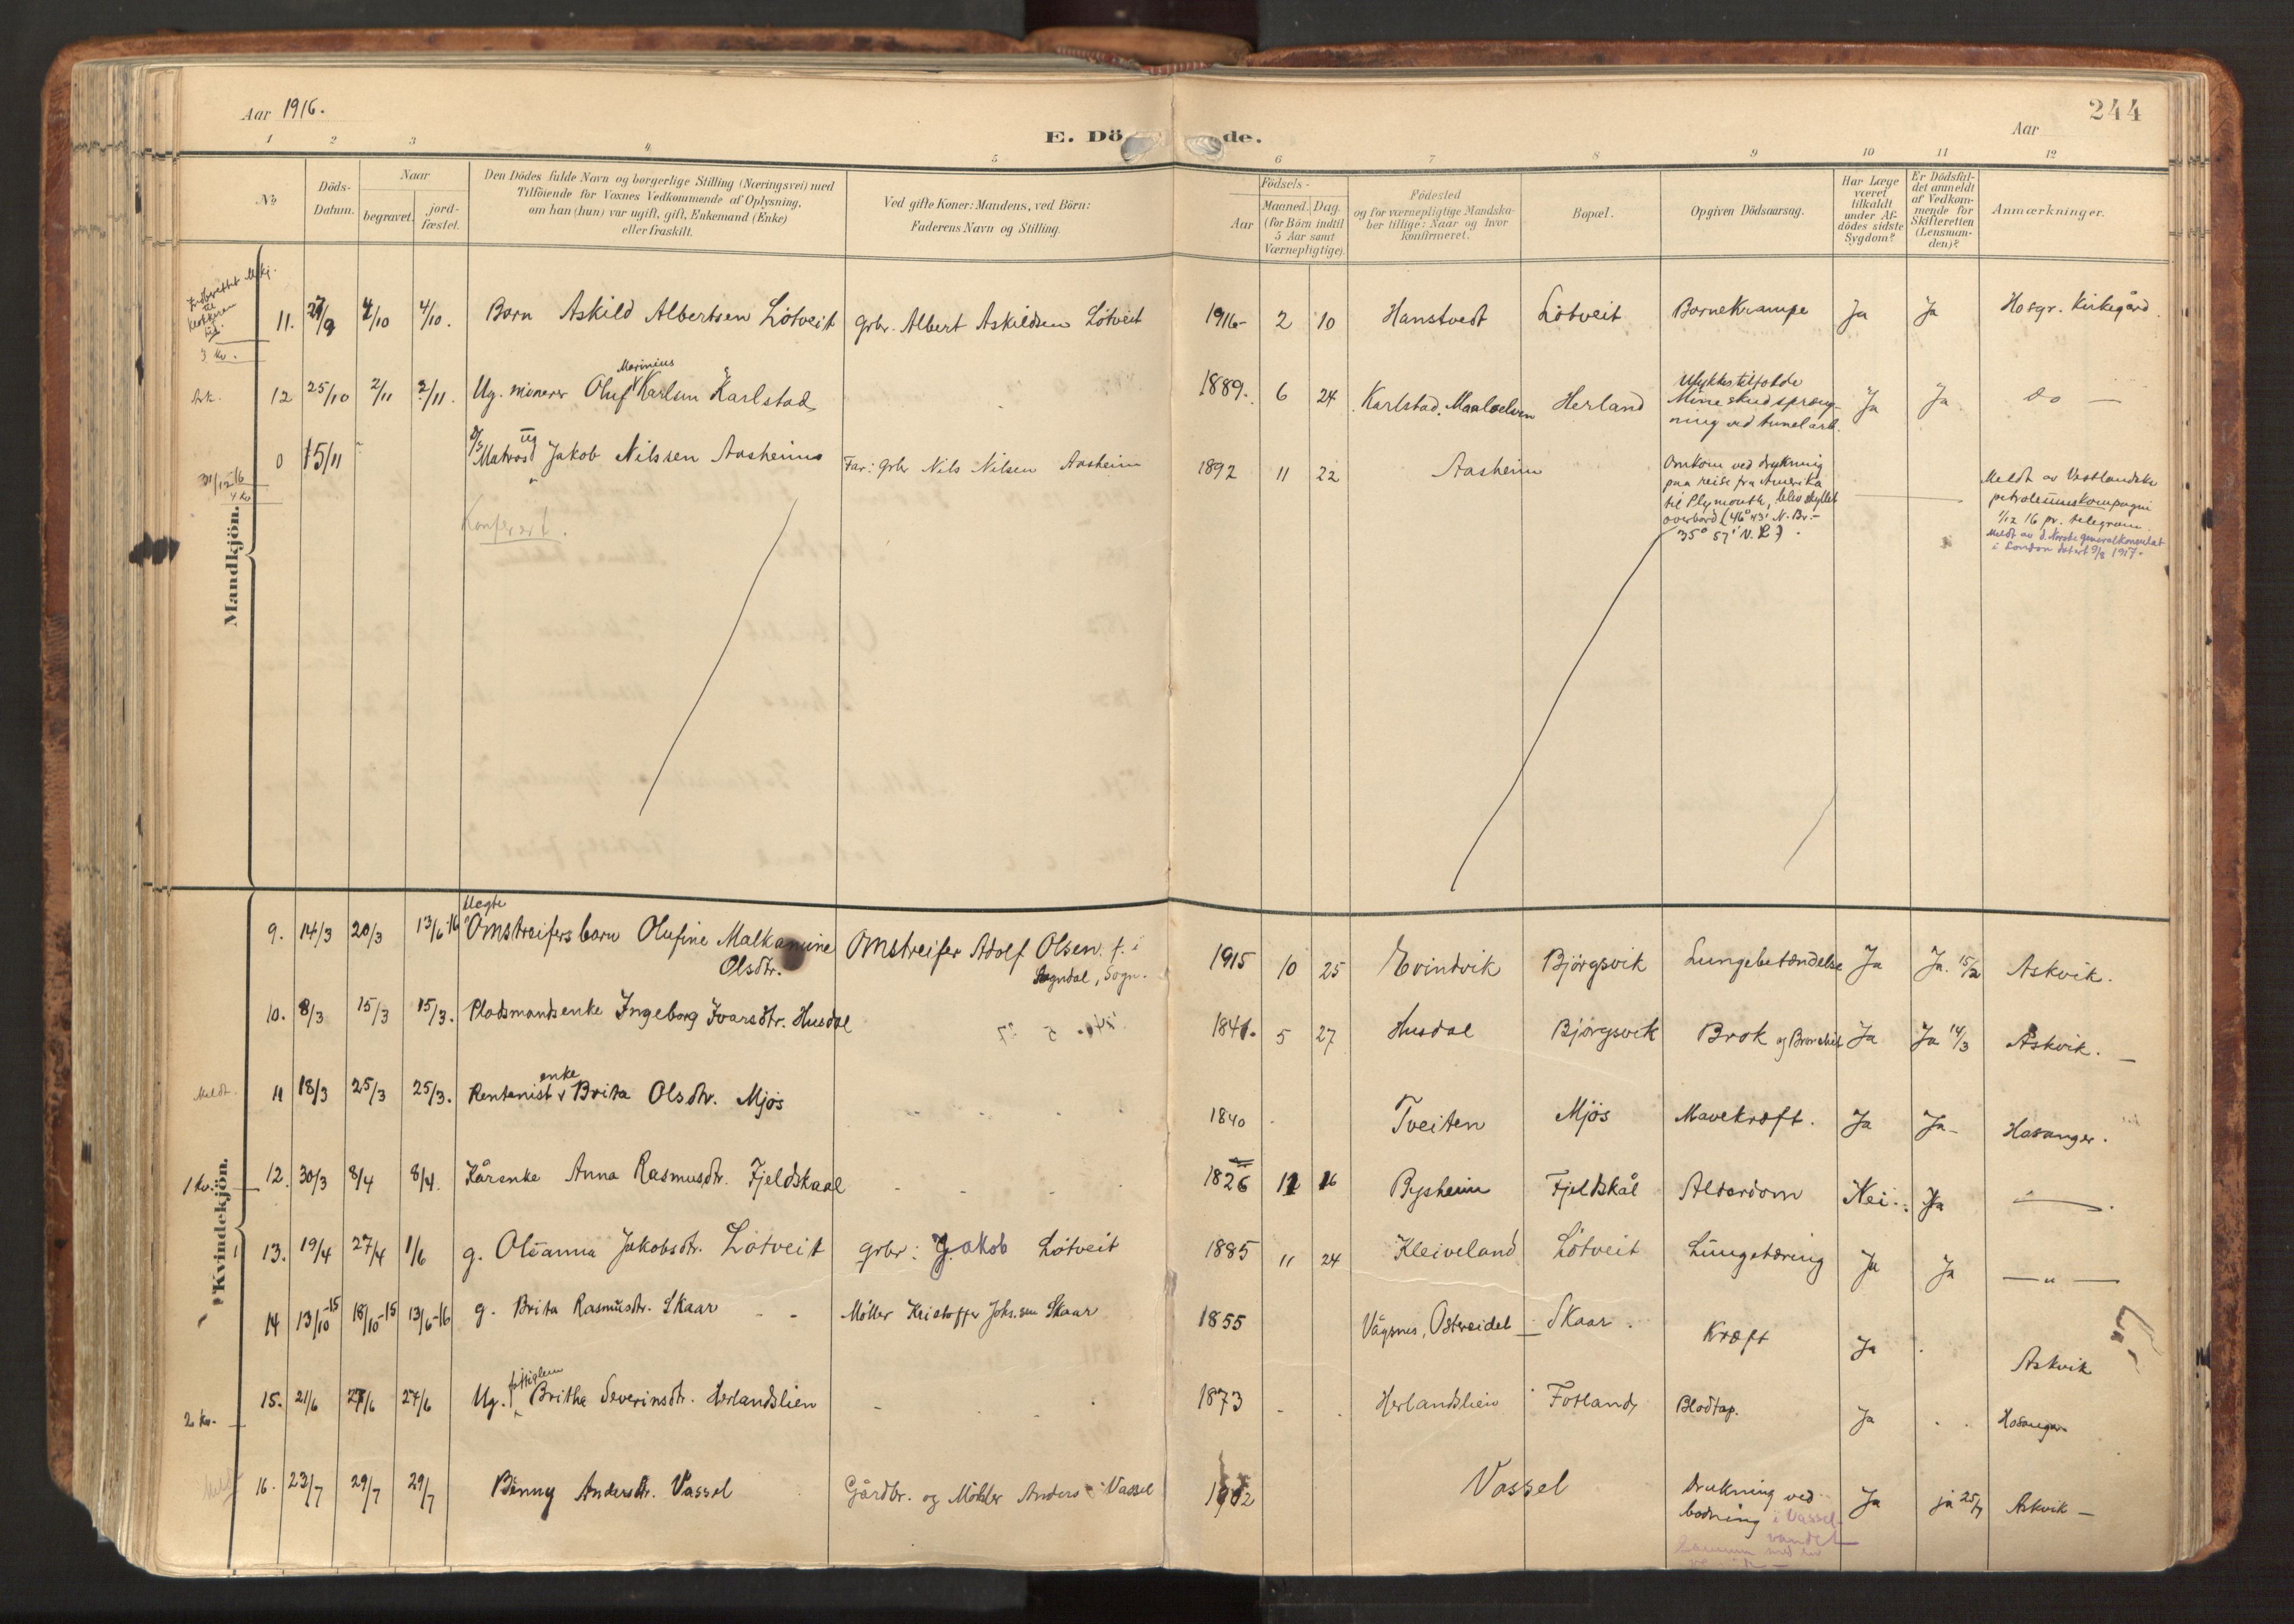 244
Aar 1916.
E. Dö de.
Aar
1 2 3 4 5 6 7 8 9 10 11 12
No
Döds-
Datum.
Naar
begravet.
jord-
fæstet.
Den Dödes fulde Navn og borgerlige Stilling (Næringsvei) med
Tilföiende for Voxnes Vedkommende af Oplysning,
om han (hun) var ugift, gift, Enkemand (Enke)
eller fraskilt.
Ved gifte Koner: Mandens, ved Börn:
Faderens Navn og Stilling.
Födsels-
Aar
Maaned. Dag.
(for Börn indtil
5 Aar samt
Værnepligtige).
Födested
og for værnepligtige Mandska-
ber tillige: Naar og hvor
Konfirmeret.
Bopæl.
Opgiven Dödsaarsag.
Har Læge
været
tilkaldt
under Af-
dödes sidste
Sygdom?
Er Dödsfal-
det anmeldt
af Vedkom-
mende for
Skifteretten
(Lensman-
den)?
Anmærkninger.
Mandkjön.
3 Kv.
11. 27/9 4/10 4/10. Barn Askild Albertsen Lötveit Grbr. Albert Askildsen Lötveit 1916- 2 10 Hanstvedt Lötveit Barnekrampe Ja Ja Hosgr. Kirkegård.
Marinius
12 25/10 2/11 2/11. Ug. minerer Oluf Karlsen Karlstad 1889. 6 24 Karlstad, Maalselven Herland
Ulykkestilfælde
Mineskudspræng-
ning ved tunelarb.
Ja Ja do —
31/12 16
4 Kv
ug
0 15/11 Matros Jakob Nilssen Aasheim Far: Grbr Nils Nilsen Aasheim 1892 11 22 Aasheim
Omkom ved drukning
paa reise fra Amerika
til Plymouth, blev skyllet
overbord (46° 43' N. Br. -
35° 57' V. L).
Meldt av Vestlandske
petroleumskompagni
1/12 16 pr. telegram.
Meldt av d. Norske generalkonsulat
i London datert 9/8 1917.
Konferert.
Kvindekjön.
Uegte
9. 14/3 20/3 13/6-16 Omstreifersbarn Olufine Malkamine
Olsdtr.
Omstreifer Adolf Olsen. f. i
Sogndal, Sogn.
1915 10 25 Evindvik Björgsvik Lungebetændelse Ja Ja. 15/2 Askvik.
10. 8/3 15/3 15/3. Pladsmandsenke Ingeborg Ivarsdtr. Husdal 1841. 5 27 Husdal Björgsvik Brok og Bronchit Ja Ja 14/3 Askvik. —
Meldt.
enke
11 18/3 25/3 25/3. Rentenist Brita Olsdtr. Mjös 1840 Tveiten Mjös Mavekræft. Ja Ja- Hosanger.
1 Kv.
12. 30/3 8/4 8/4. Kårenke Anna Rasmusdtr. Fjeldskaal 1826 12 16 Bysheim Fjeldskål Alderdom Nei. Ja —
13. 19/4 27/4 1/6 g. Oleanna Jakobsdtr. Lötveit grbr: Jakob Lötveit 1885 11 24 Kleiveland Lötveit Lungetæring Ja Ja — " —
14 13/10-15 18/10-15 13/6-16 g. Brita Rasmusdtr. Skaar Möller Kristoffer Johs.sen Skaar 1855 Vågsnes, Ostereidet Skaar. Kræft Ja Askvik
2 Kv.
fattiglem
15. 21/6 27/6 27/6 Ug. Brithe Severinsdtr. Herlandslien 1873 Herlandslien Fotland Blodtap. Ja Hosanger
16. 23/7 29/7 29/7 Benny Andersdtr. Vassel Gårdbr. og Möller Anders Vassel 1902 Vassel
Drukning ved
badning i Vassel-
vandet
Ja ja 25/7 Askvik —